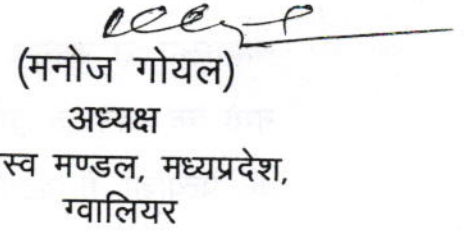 (मनोज गोयल)
अध्यक्ष
स्व मण्डल, मध्यप्रदेश,
ग्वालियर